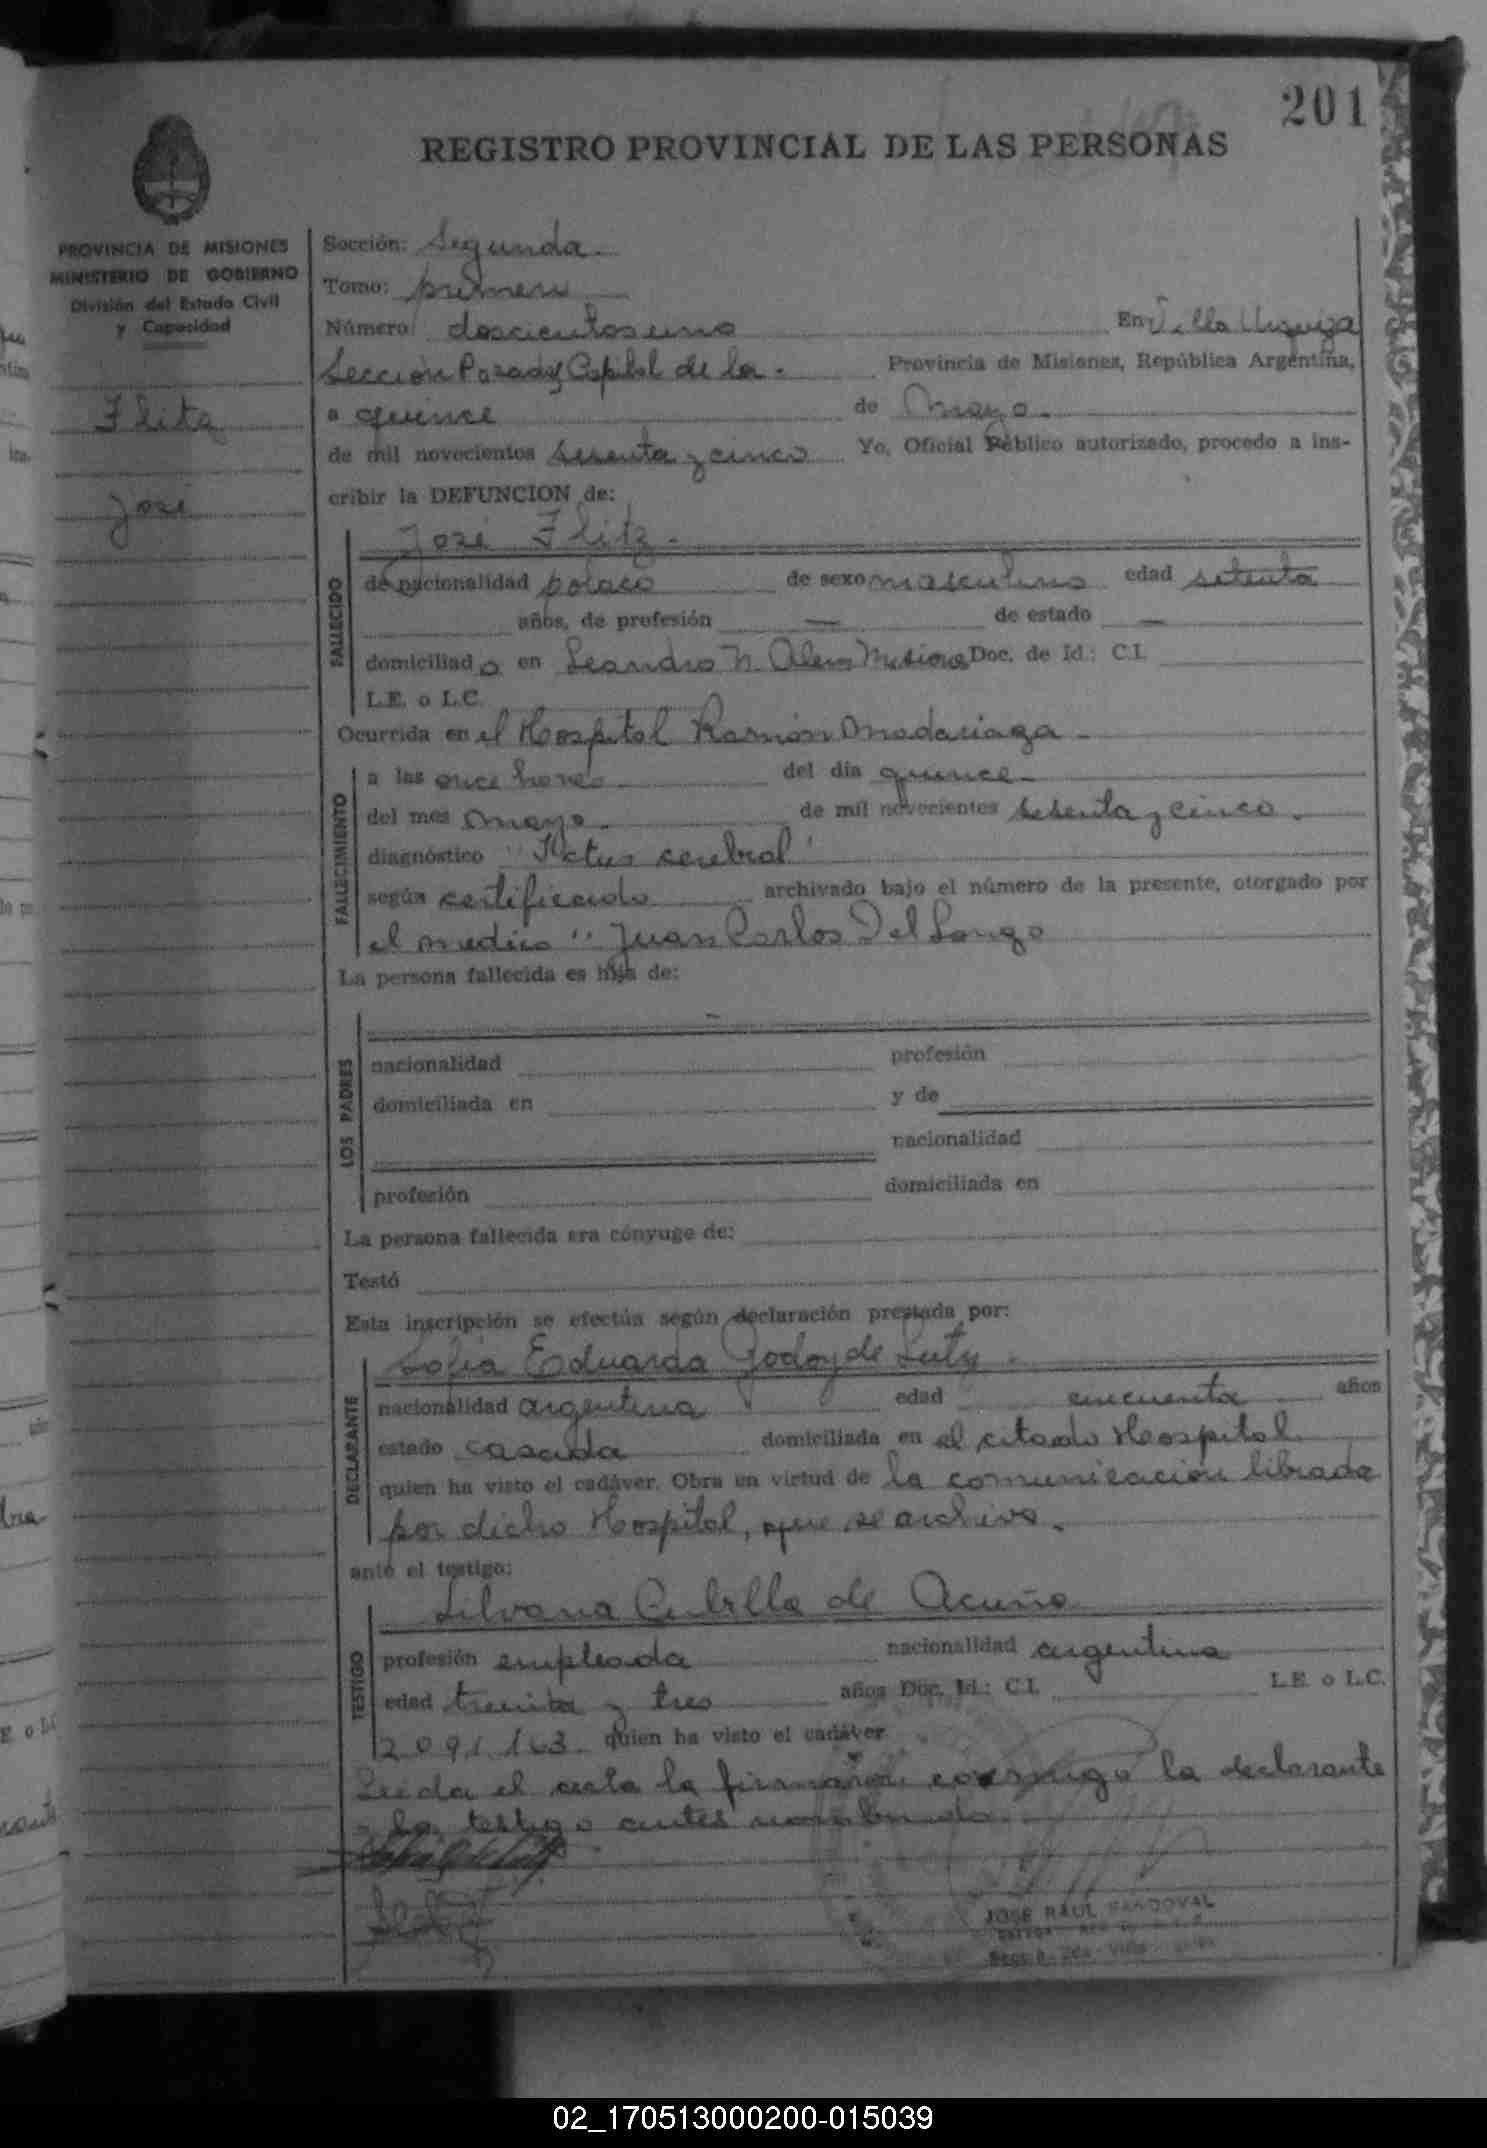 201
REGISTRO PROVINCIAL DE LAS PERSONAS
PROVINCIA DE MISIONES
MINISTERIO DE GOBIERNO
División del Estado Civil
y Capacidad
Flitz
José
Sección: Segunda
Tomo: primero
Número doscientos uno En Villa Urquiza
Sección Posadas Capital de la Provincia de Misiones, República Argentina,
a quince de Mayo
de mil novecientos sesenta y cinco Yo, Oficial Público autorizado, procedo a ins-
cribir la DEFUNCION de:
José Flitz
FALLECIDO
de nacionalidad polaco de sexo masculino edad setenta
años, de profesión — de estado —
domiciliado en Leandro N. Alem Misiones Doc. de Id.: C.I.
L.E. o L.C.
Ocurrida en el Hospital Ramón Madariaga
FALLECIMIENTO
a las once horas del día quince
del mes Mayo de mil novecientos sesenta y cinco.
diagnóstico "Ictus cerebral"
según certificado archivado bajo el número de la presente, otorgado por
el medico "Juan Carlos Del Longo
La persona fallecida es hijo de:
LOS PADRES
nacionalidad profesión
domiciliada en y de
nacionalidad
profesión domiciliada en
La persona fallecida era cónyuge de:
Testó
Esta inscripción se efectúa según declaración prestada por:
Sofia Eduarda Godoy de Luty
DECLARANTE
nacionalidad argentina edad cincuenta años
estado casada domiciliada en el citado Hospital
quien ha visto el cadáver. Obra en virtud de la comunicación librada
por dicho Hospital, que se archiva.
ante el testigo:
Silvana Cubilla de Acuña
TESTIGO
profesión empleada nacionalidad argentina
edad treinta y tres años Doc. Id.: C.I. L.E. o L.C.
2.091.163 quien ha visto el cadáver
Leida el acta la firmaron conmigo la declarante
y la testigo antes nombrada.
JOSE RAUL SANDOVAL
02_170513000200-015039